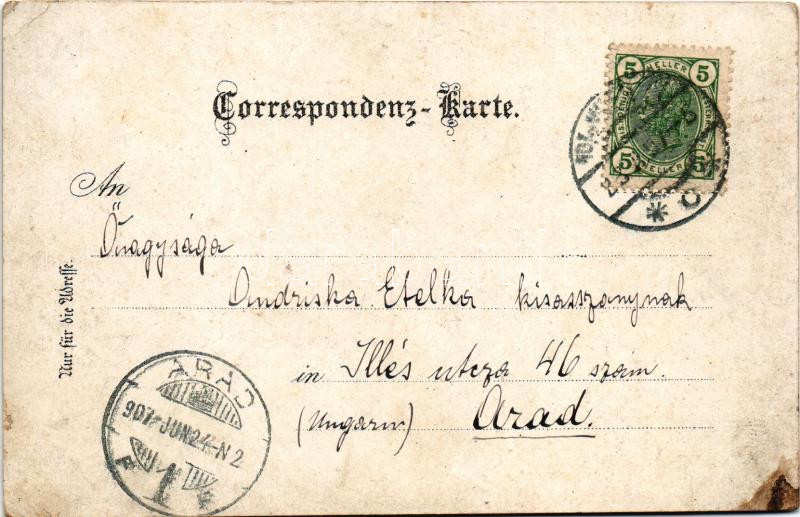 Correspondenz-Karte.
5 HELLER 5
5 HELLER 5
An
Őnagysága
Andriska Etelka kisasszonynak
in Illés utcza 46 szám.
(Ungarn) Arad.
Nur für die Adresse.
ARAD
907 JUN 24 N 2